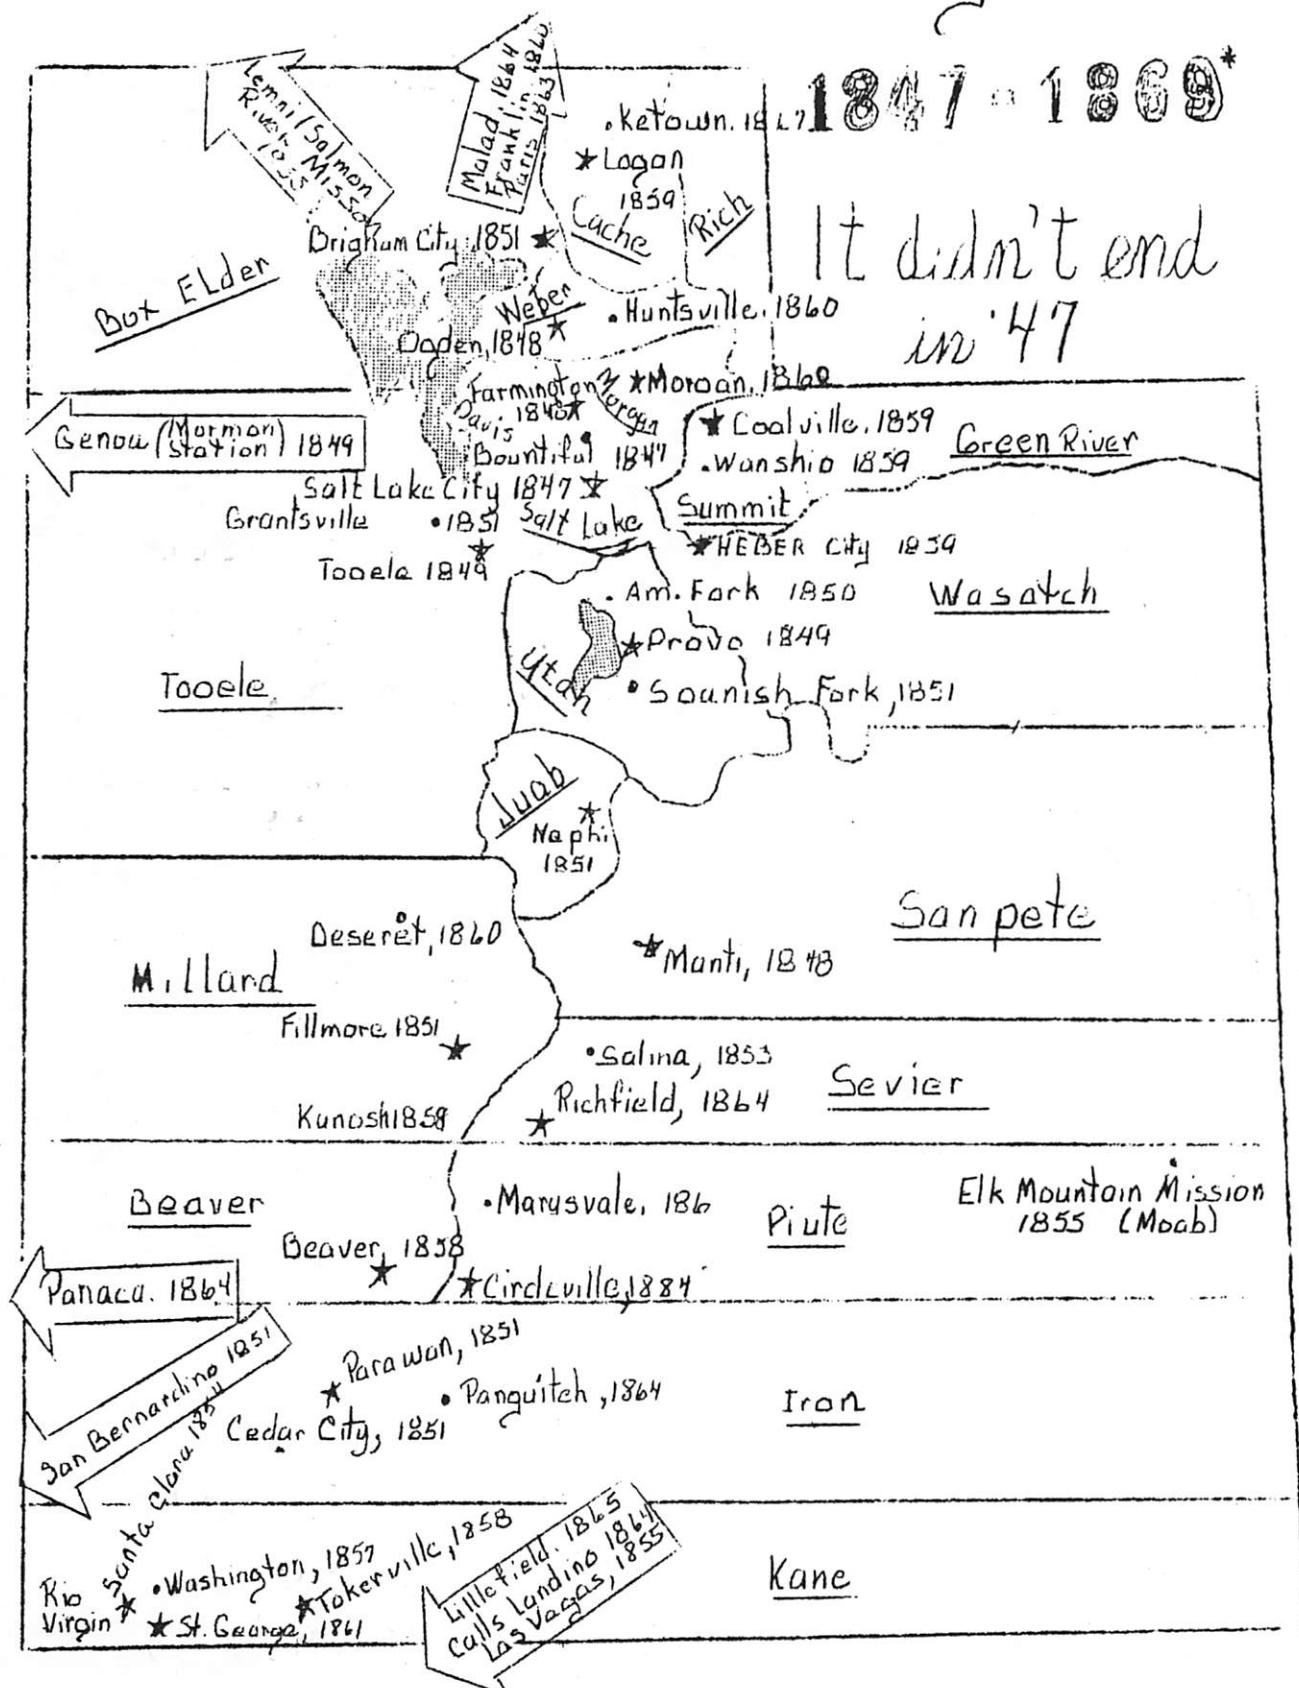 1847 - 1869*
It didn't end
in '47
Lemhi/Salmon
River Misso
1855
Malad, 1864
Franklin 1860
Paris 1863
Ketown. 1867
Logan
1859
Cache
Rich
Brigham City, 1851
Box Elder
Weber
Huntsville, 1860
Ogden, 1848
Farmington
1848
Davis
Morgan
Morgan, 1860
Genoa (Mormon Station) 1849
Bountiful 1847
Coalville, 1859
Wanship 1859
Green River
Salt Lake City 1847
Grantsville 1851
Salt Lake
Summit
HEBER City 1859
Tooele 1849
Am. Fork 1850
Wasatch
Provo 1849
Utah
Tooele
Spanish Fork, 1851
Juab
Nephi
1851
Sanpete
Deseret, 1860
Manti, 1848
Millard
Fillmore 1851
Salina, 1853
Sevier
Richfield, 1864
Kanosh 1859
Beaver
Marysvale, 186
Piute
Elk Mountain Mission
1855 (Moab)
Beaver, 1858
Circleville, 1884
Panaca. 1864
San Bernardino 1851
Parawan, 1851
Panguitch, 1864
Iron
Cedar City, 1851
Santa Clara
Washington, 1857
Tokerville, 1858
Rio
Virgin
St. George, 1861
Littlefield. 1865
Calls Landing 1864
Las Vegas, 1855
Kane